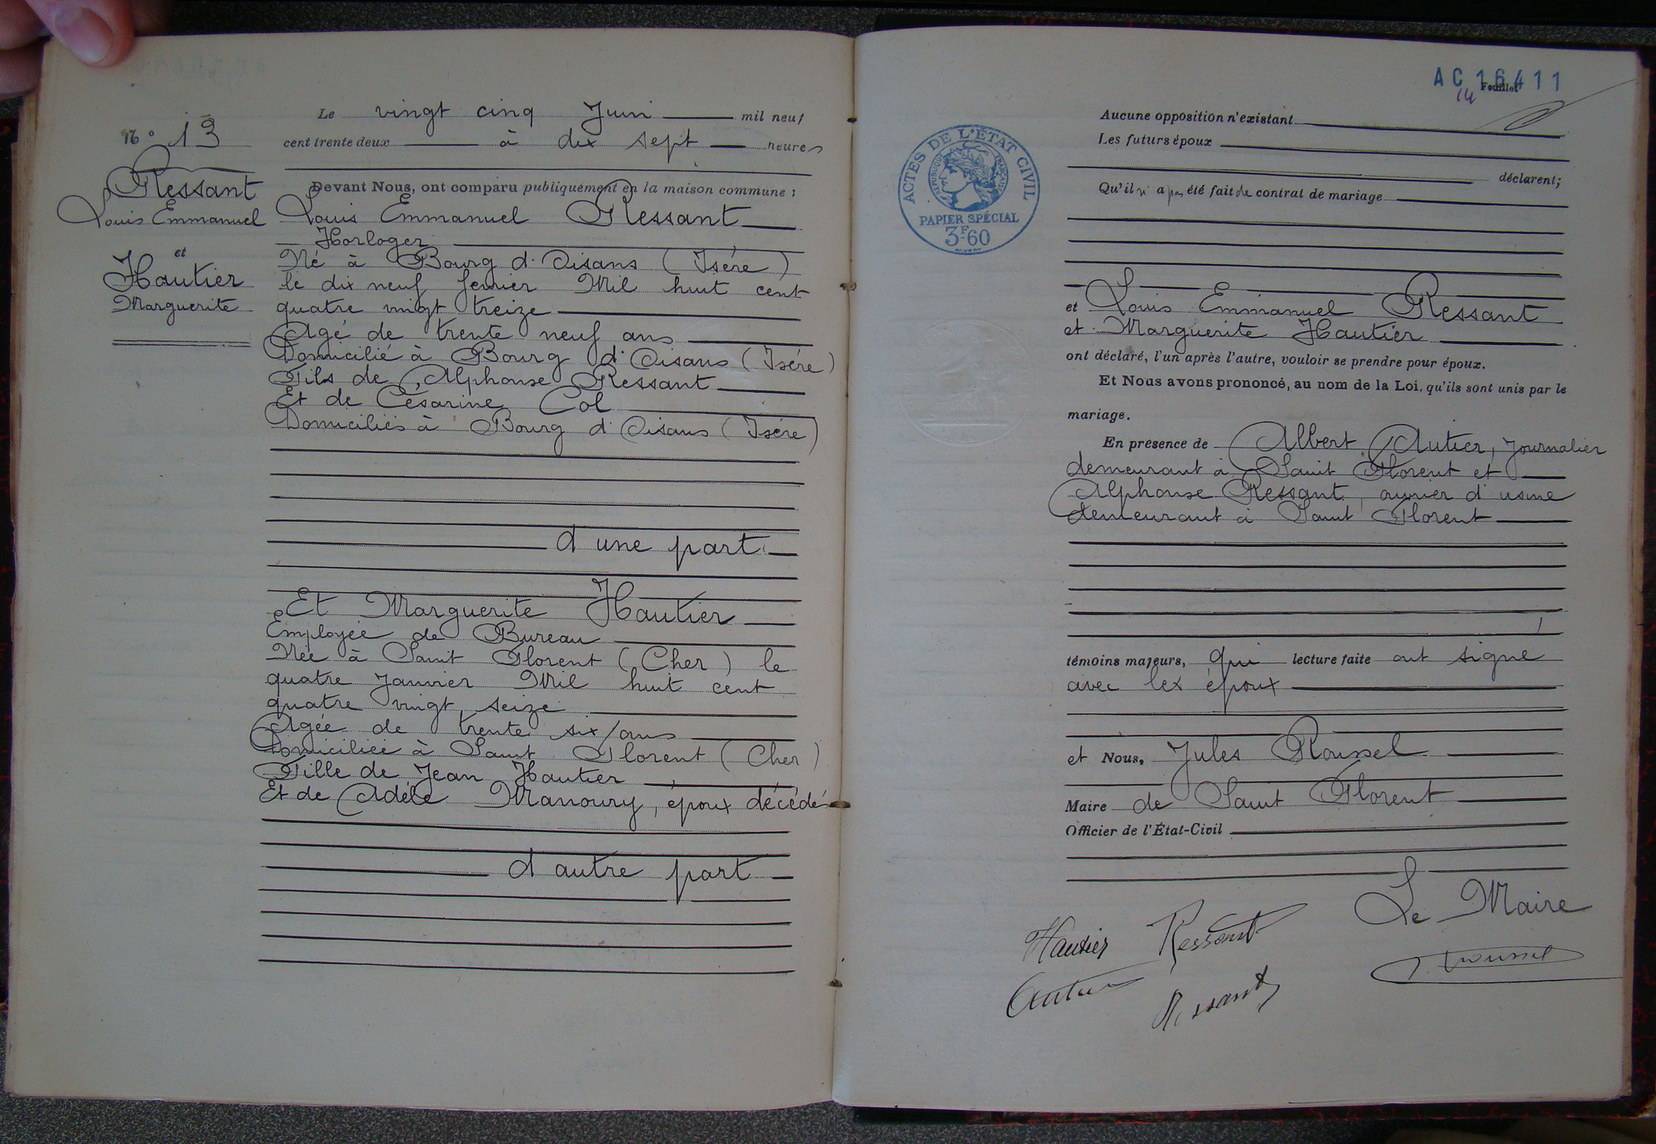 N° 13
Ressant
Louis Emmanuel
et
Hautier
Marguerite
Le vingt cinq Juin mil neuf
cent trente deux à dix sept heures
Devant Nous, ont comparu publiquement en la maison commune :
Louis Emmanuel Ressant
Horloger
Né à Bourg d'Oisans (Isére)
le dix neuf fevrier Mil huit cent
quatre vingt treize
Agé de trente neuf ans
Domicilié à Bourg d'Oisans (Isére)
Fils de Alphonse Ressant
Et de Césarine Col
Domiciliés à Bourg d'Oisans (Isére)
d'une part
Et Marguerite Hautier
Employée de Bureau
Née à Saint Florent (Cher) le
quatre Janvier Mil huit cent
quatre vingt seize
Agée de trente six ans
Domiciliée à Saint Florent (Cher)
Fille de Jean Hautier
Et de Adèle Manoury, époux décédés
d'autre part
AC 16411
14 Feuillet
ACTES DE L'ÉTAT CIVIL
PAPIER SPÉCIAL
3F60
Aucune opposition n'existant
Les futurs époux
déclarent;
Qu'il n'a pas été fait de contrat de mariage
et Louis Emmanuel Ressant
et Marguerite Hautier
ont déclaré, l'un après l'autre, vouloir se prendre pour époux.
Et Nous avons prononcé, au nom de la Loi, qu'ils sont unis par le
mariage.
En presence de Albert Autier, Journalier
demeurant à Saint Florent et
Alphonse Ressant, ouvrier d'usine
demeurant à Saint Florent
témoins majeurs, qui lecture faite ont signé
avec les époux
et Nous, Jules Roussel
Maire de Saint Florent
Officier de l'État-Civil
Le Maire
Hautier Ressant
J. Roussel
Autier Ressant